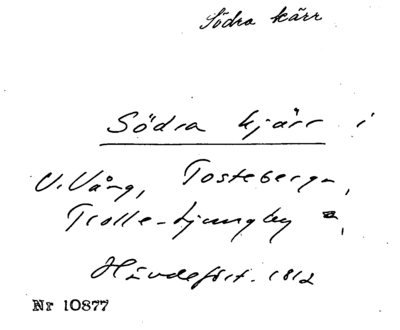 Södra kärr
Södra kjärr i
V. Vång, Tosteberga,
Trolle-Ljungby
Hävdeför. 1812
Nr 10877